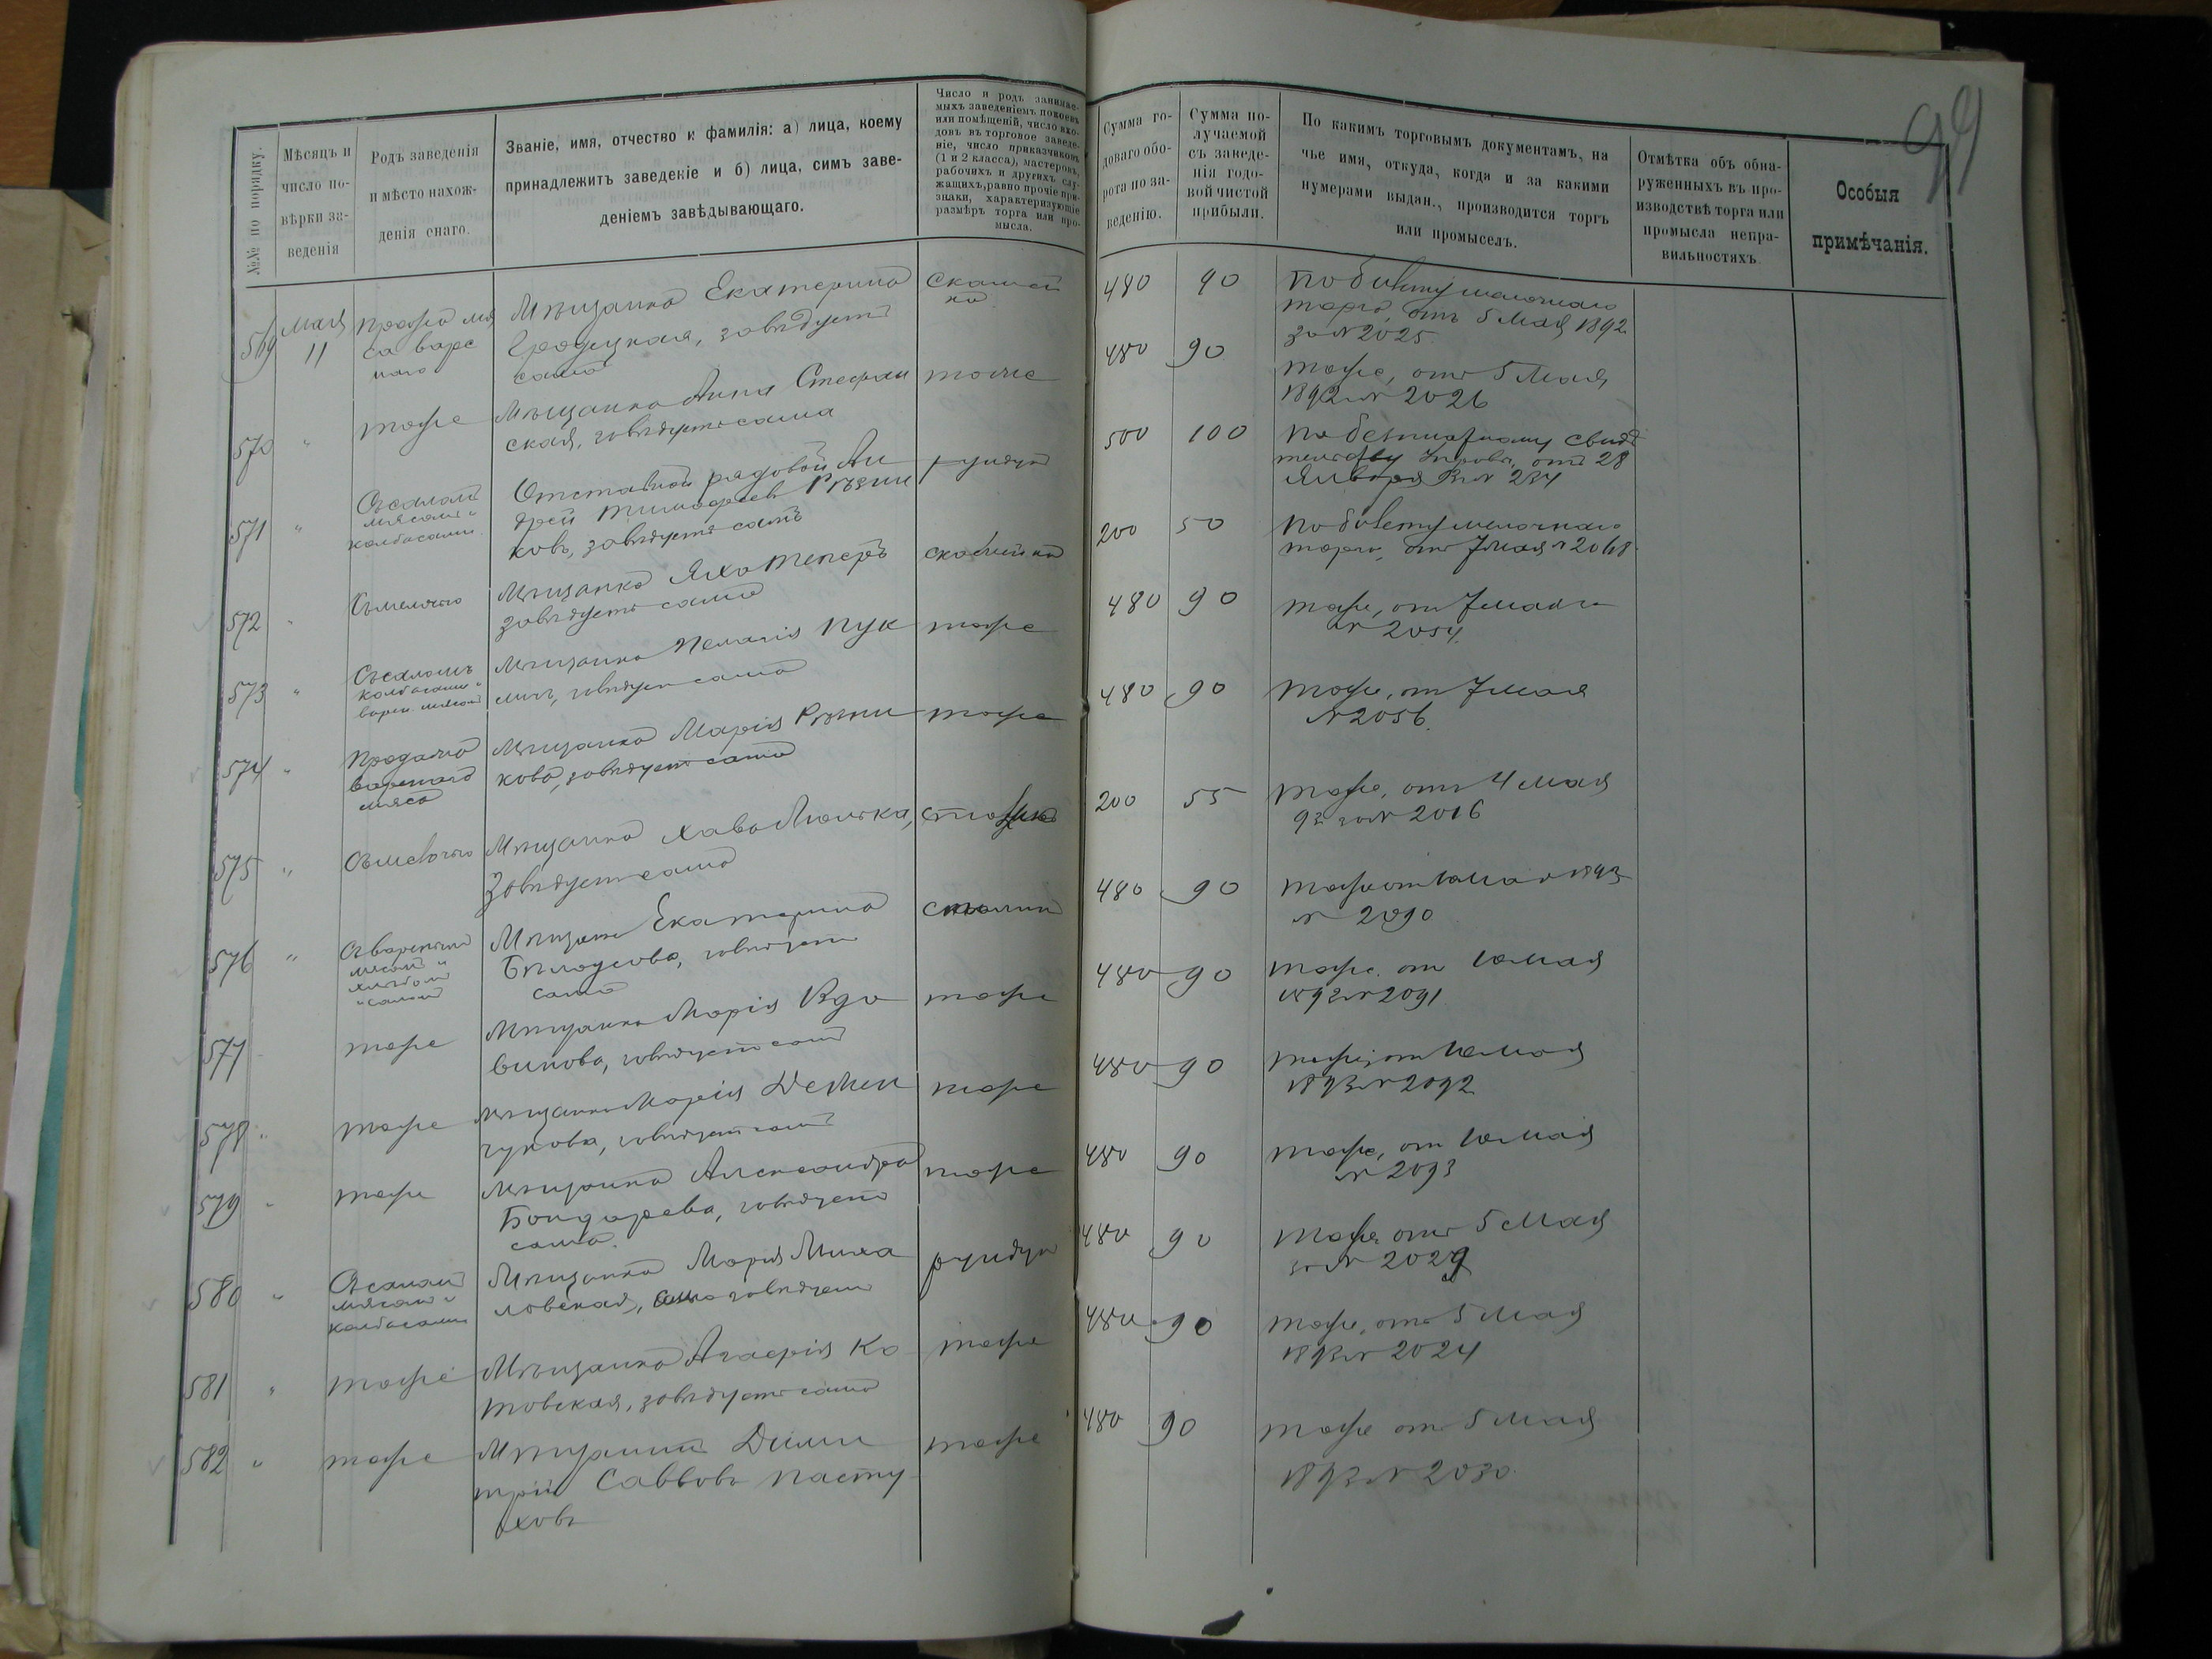 99
№№ по порядку.
Мѣсяцъ и
число по-
вѣрки за-
веденія
Родъ заведенія
и мѣсто нахож-
денія онаго.
Званіе, имя, отчество и фамилія: а) лица, коему
принадлежитъ заведеніе и б) лица, симъ заве-
деніемъ завѣдывающаго.
Число и родъ занимае-
мыхъ заведеніемъ покоевъ
или помѣщеній, число вхо-
довъ въ торговое заведе-
ніе, число приказчиковъ
(1 и 2 класса), мастеровъ,
рабочихъ и другихъ слу-
жащихъ, равно прочіе при-
знаки, характеризующіе
размѣръ торга или про-
мысла.
Сумма го-
доваго обо-
рота по за-
веденію.
Сумма по-
лучаемой
съ заведе-
нія годо-
вой чистой
прибыли.
По какимъ торговымъ документамъ, на
чье имя, откуда, когда и за какими
нумерами выдан., производится торгъ
или промыселъ.
Отмѣтка объ обна-
руженныхъ въ про-
изводствѣ торга или
промысла непра-
вильностяхъ.
Особыя
примѣчанія.
569
Мая
11
Продажа мя
са варе
наго
Мѣщанка Екатерина
Гродецкая, завѣдуетъ
сама
Скамей
ка
480
90
По билету мелочнаго
торга, отъ 5 Мая 1892
за № 2025
570 "
тоже
Мѣщанка Анна Стефан
ская, завѣдуетъ сама
тоже
480
90
тоже, отъ 5 Мая
1892 № 2026
571 "
Съ саломъ
мясомъ и
колбасами
Отставной рядовой Ан
дрей Тимофеевъ Рѣзни
ковъ, завѣдуетъ самъ
рундукъ
500
100
По безплатному свидѣ
тельству Управы, отъ 28
Января № 234
572 "
Съ мелочью
Мѣщанка Яхо Теперъ
завѣдуетъ сама
скамейка
200
50
По билету мелочнаго
торга, отъ 7 Мая № 2068
573 "
Съ саломъ
колбасами и
варен. мясомъ
Мѣщанка Пелагія Пук
завѣдуетъ сама
тоже
480
90
тоже, от 7 мая за
№ 2054
574 "
Продажа
варенаго
мяса
Мѣщанка Марія Рѣзни
кова, завѣдуетъ сама
тоже
480
90
тоже, от 7 мая
№ 2056
575 "
Съ мелочью
Мѣщанка Хава
завѣдуетъ сама
столикъ
200
55
тоже, отъ 4 мая
93 за № 2016
576 "
Съ варенымъ
мясомъ и
хлѣбомъ
и саломъ
Мѣщанка Екатерина
Бѣлоусова, завѣдуетъ
сама
столикъ
480
90
тоже от 10 мая 1893
№ 2090
577
тоже
Мѣщанка Марія Вдо
викова, завѣдуетъ сама
тоже
480
90
тоже, отъ 10 мая
1893 № 2091
578 "
тоже
Мѣщанка Марія Демен
чукова, завѣдуетъ сама
тоже
480
90
тоже, от 10 мая
1893 № 2092
579 "
тоже
Мѣщанка Александра
Бондарева, завѣдуетъ
сама.
тоже
480
90
тоже, от 10 мая
№ 2093
580 "
Съ саломъ
мясомъ и
колбасами
Мѣщанка Марія Миха
ловская, сама завѣдуетъ
рундукъ
480
90
тоже отъ 5 Мая
за № 2029
581 "
тоже
Мѣщанка Агафія Ко
товская, завѣдуетъ сама
тоже
480
90
тоже, отъ 5 Мая
1893 № 2024
582 "
тоже
Мѣщанинъ Дими
трій Саввовъ Пасту
ховъ
тоже
480
90
тоже отъ 5 Мая
1893 № 2030